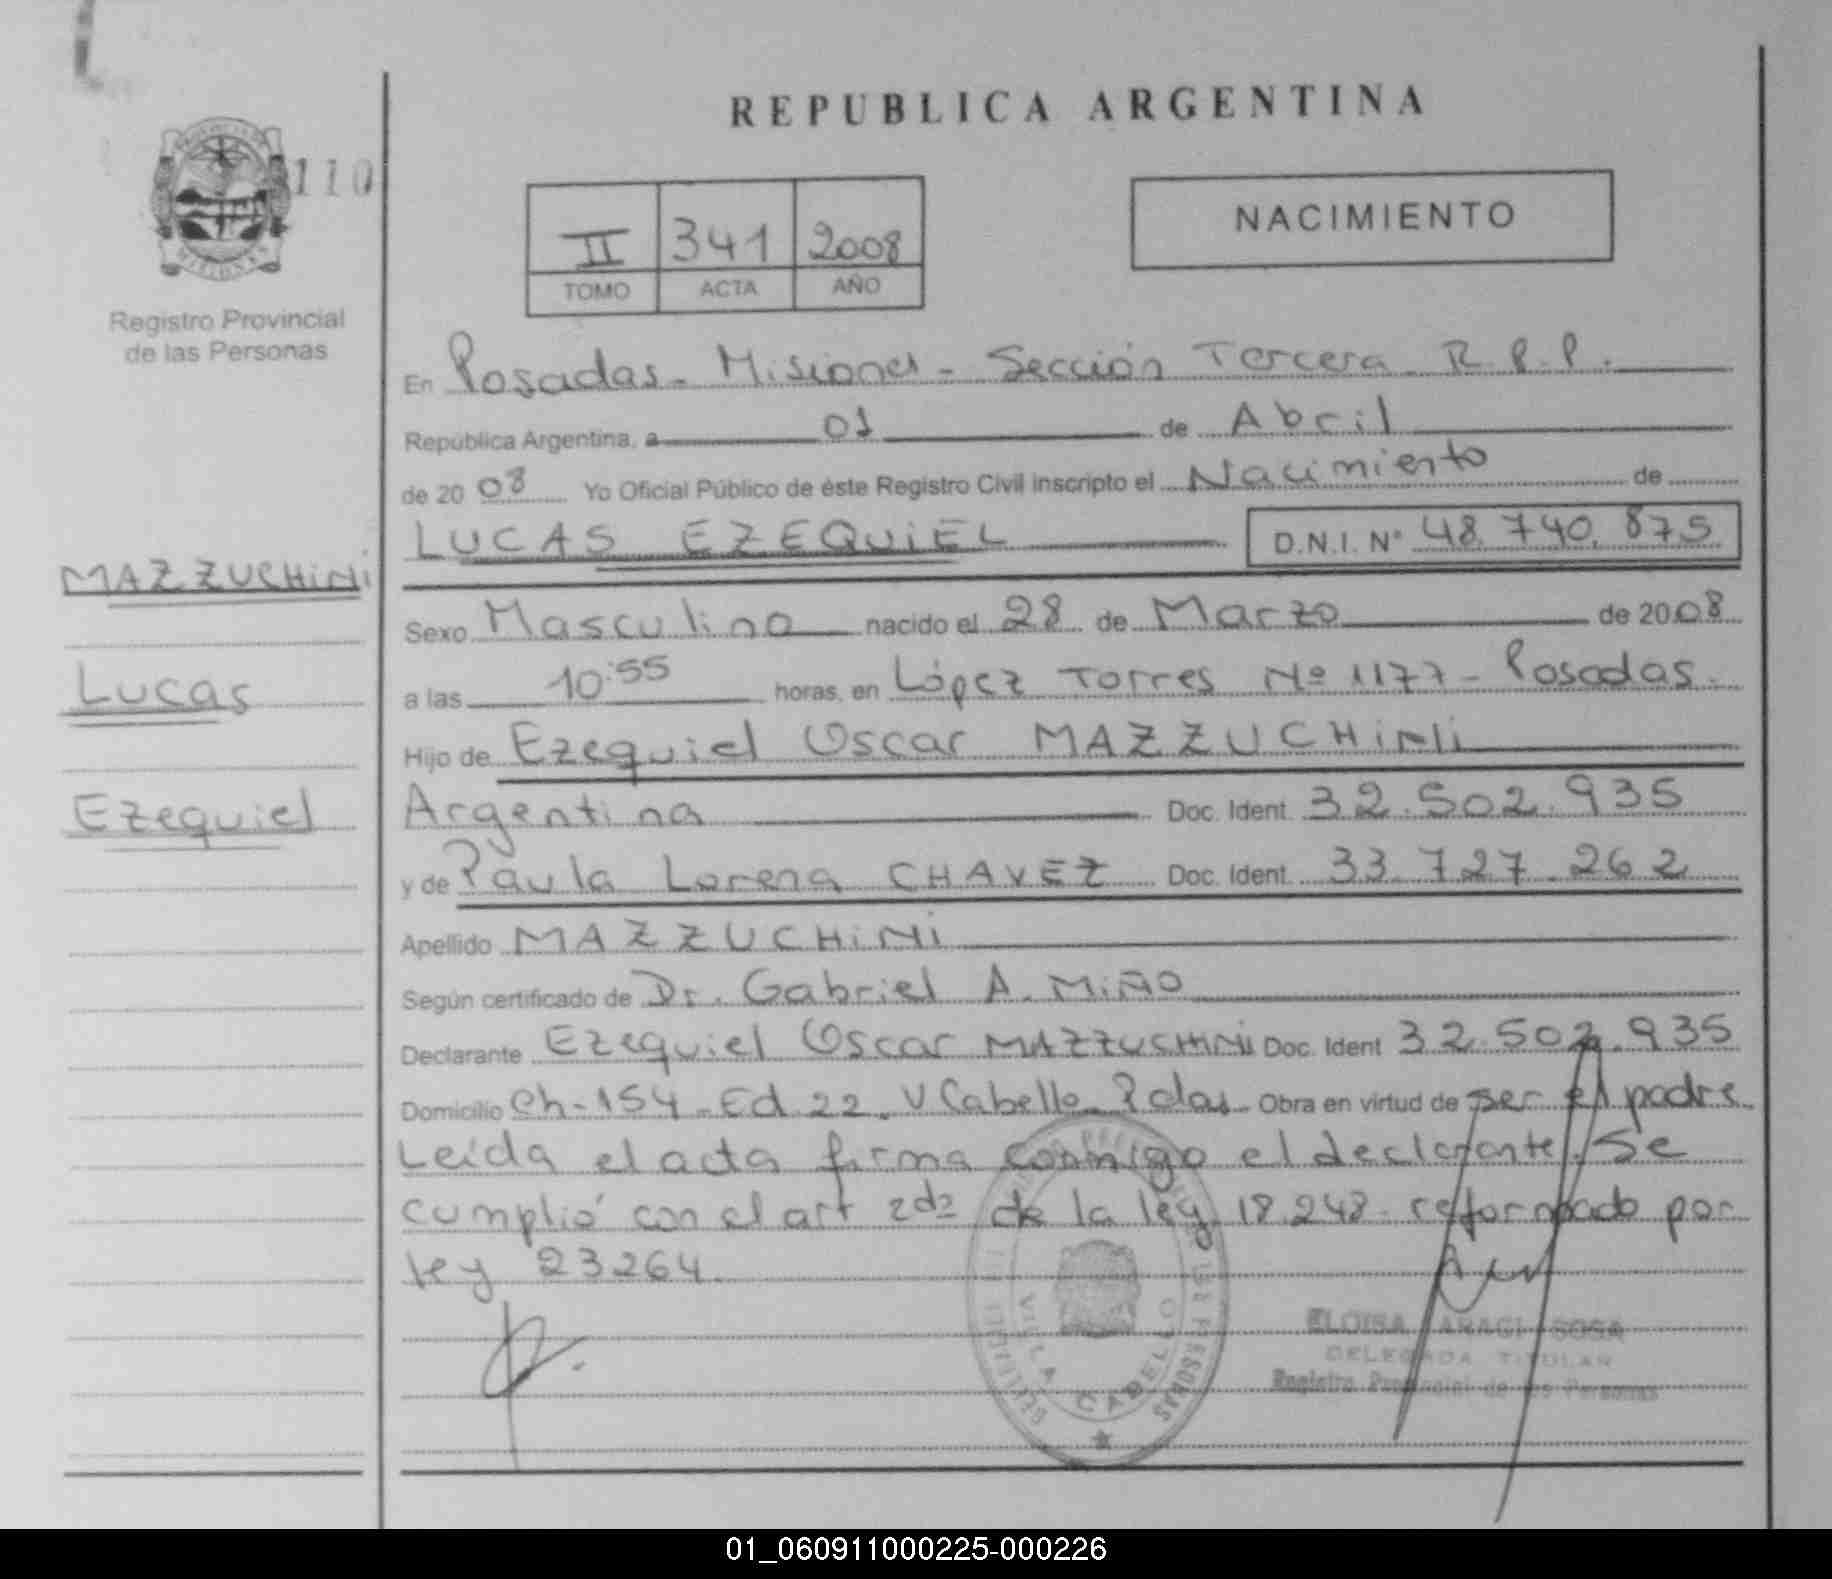 REPUBLICA ARGENTINA
110
NACIMIENTO
II 341 2008
TOMO ACTA AÑO
MISIONES
Registro Provincial
de las Personas
En Posadas - Misiones - Sección Tercera R.P.P.
República Argentina, a 01 de Abril
de 2008 Yo Oficial Público de éste Registro Civil inscripto el Nacimiento de
LUCAS EZEQUIEL D.N.I. Nº 48.740.875
MAZZUCHiNi
Sexo Masculino nacido el 28 de Marzo de 2008
Lucas
a las 10:55 horas, en López Torres Nº 1177 - Posadas.
Hijo de Ezequiel Oscar MAZZUCHiNi
Ezequiel
Argentina Doc. Ident. 32.502.935
y de Paula Lorena CHAVEZ Doc. Ident. 33.727.262
Apellido MAZZUCHiNi
Según certificado de Dr. Gabriel A. MiÑO
Declarante Ezequiel Oscar MAZZUCHiNi Doc. Ident 32.502.935
Domicilio Ch-154 - Ed 22. V Cabello. Pdas. Obra en virtud de ser el padre
Leída el acta firma conmigo el declarante. Se
cumplió con el art 2do de la ley 18.248 reformado por
ley 23264.
VILLA CABELLO
ELOISA SOSA
DELEGADA TITULAR
Registro Provincial de las Personas
01_060911000225-000226